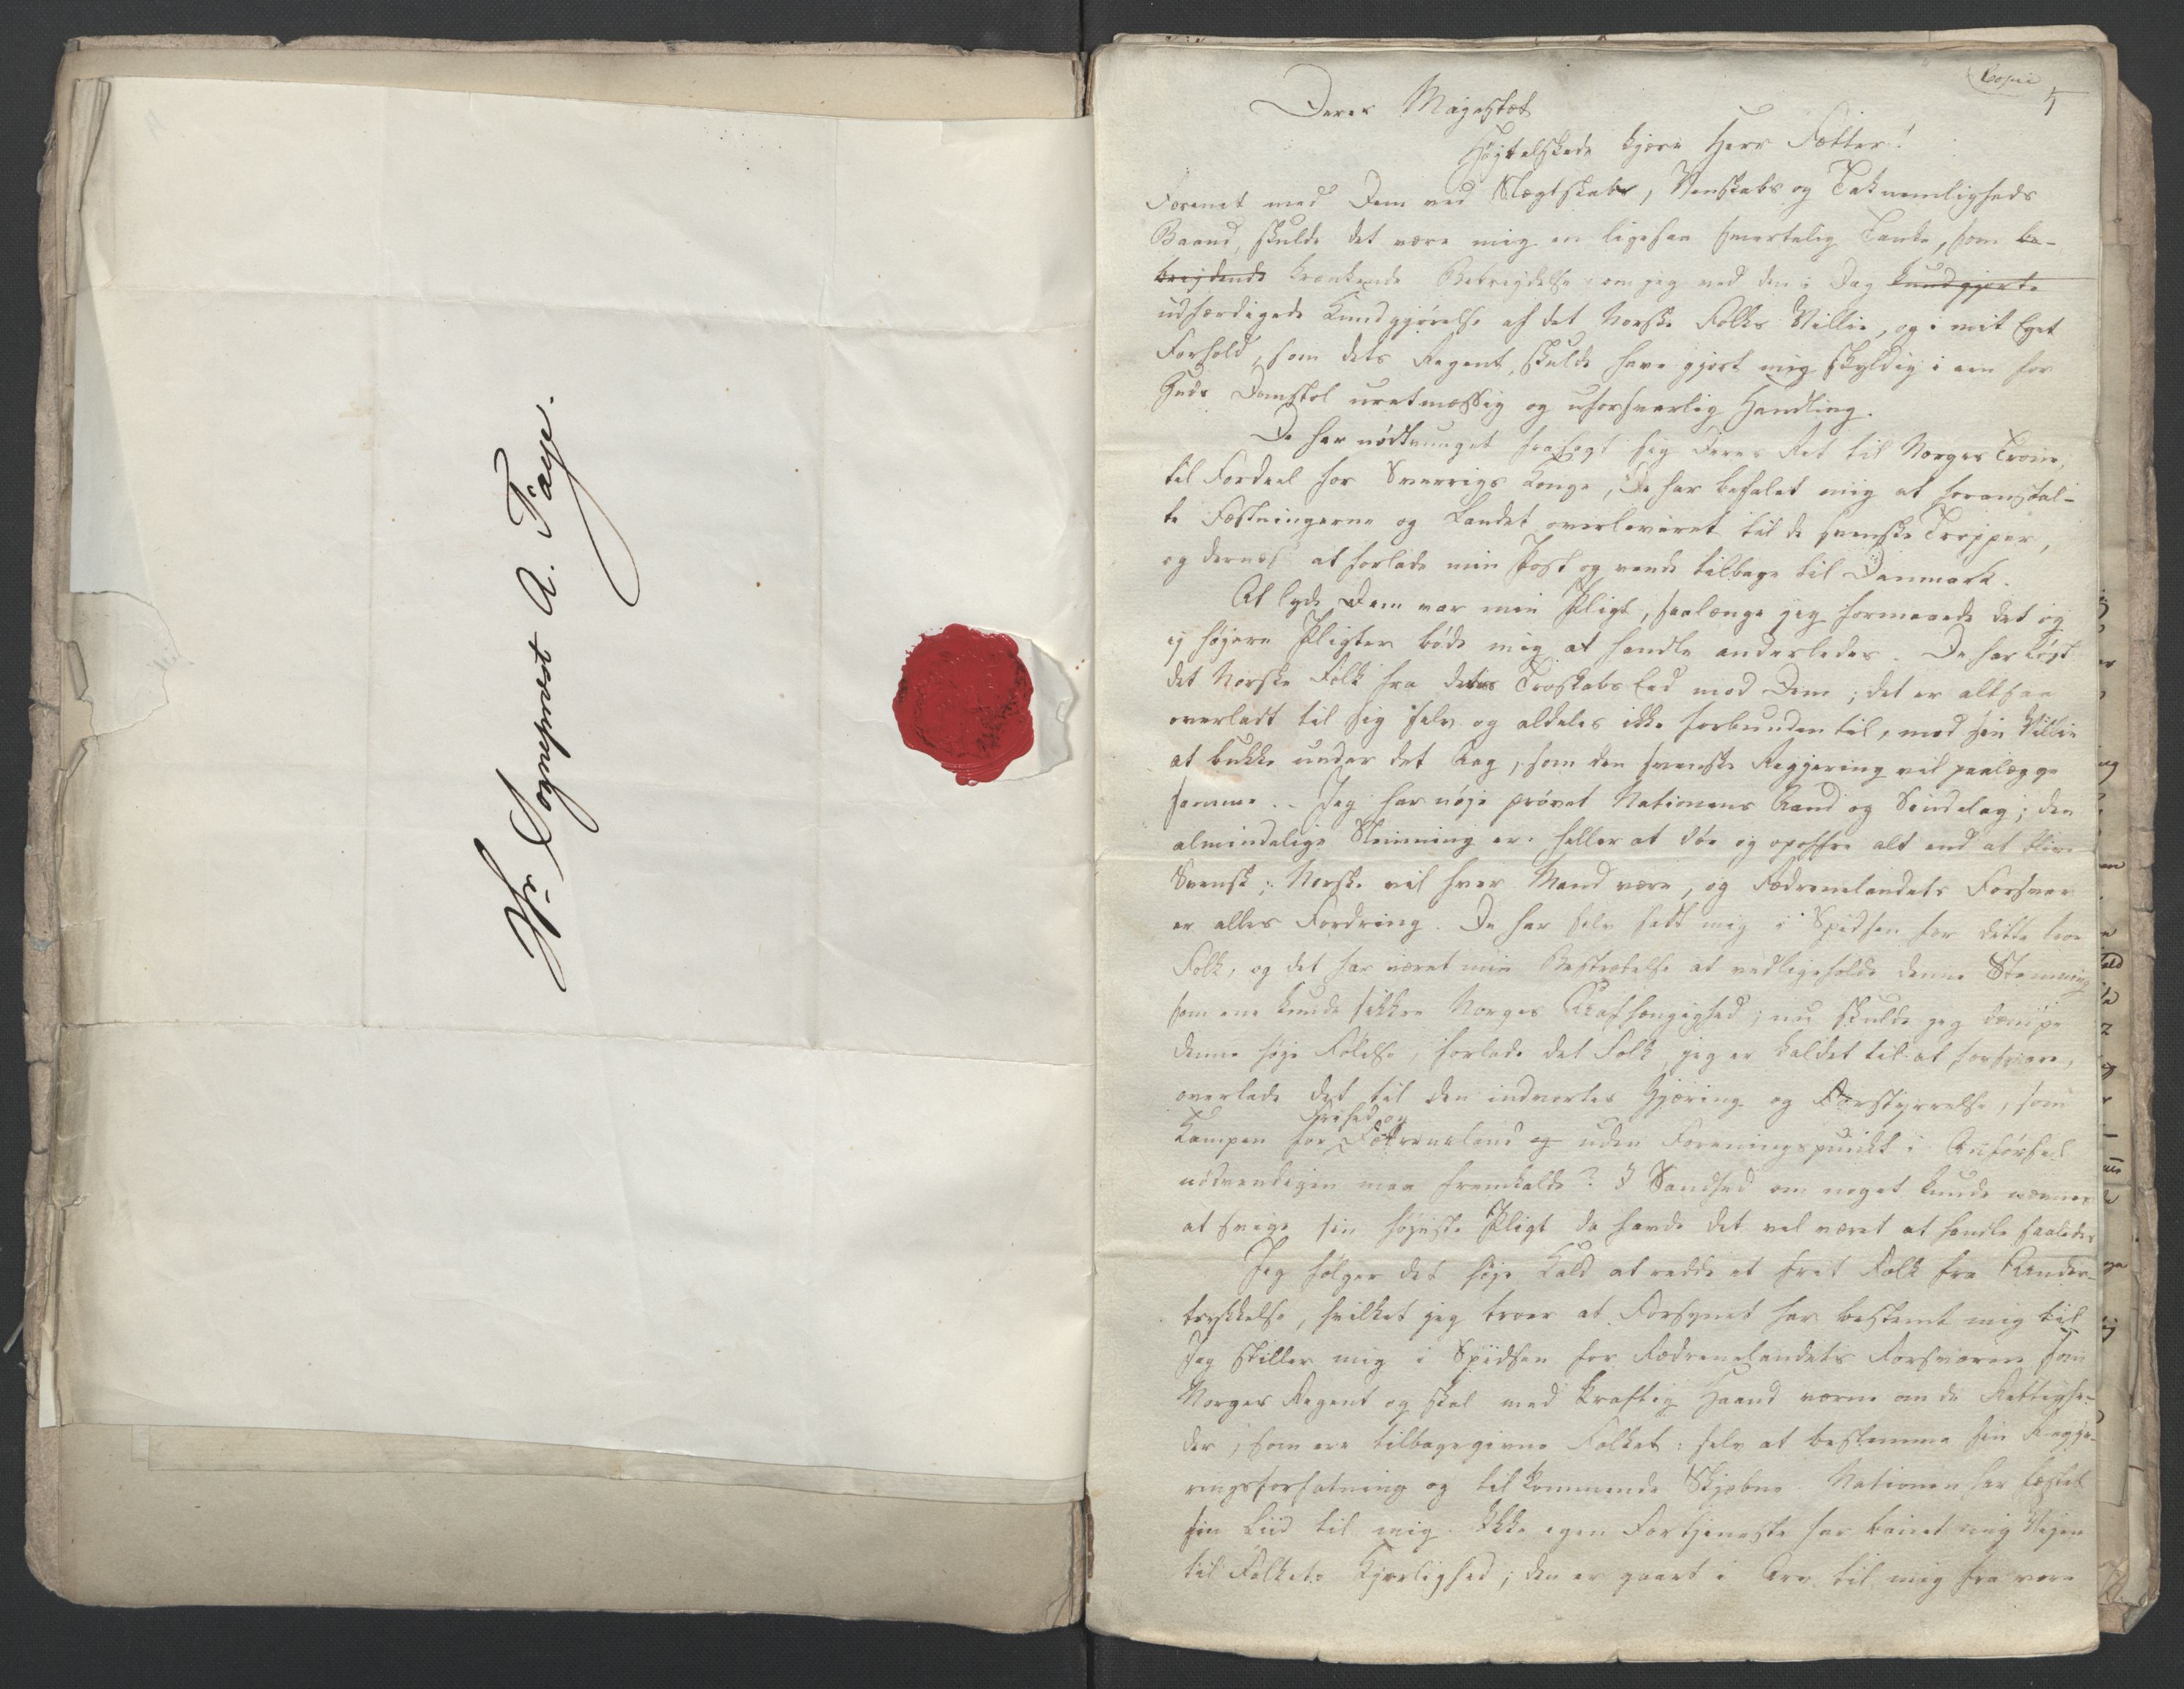 Hr. Sogneprest A. Faye.
Copie
5
Deres Majestæt
Højtelskede kjære Herr Fætter!
Forenet med Dem ved Slægtskabs, Venskabs og Taknemligheds
Baand, skulde det være mig en ligesaa smertelig Tanke, som be-
brejdende krænkende Bebrejdelse om jeg ved den i Dag kundgjorte
udfærdigede Kundgjørelse af det Norske Folks Villie, og i mit Eget
Forhold, som dets Regent, skulde have gjort mig skyldig i een for
Guds Domstol uretmæssig og uforsvarlig Handling.
De har nødtvunget frasagt sig Deres Ret til Norges Trone,
til Fordeel for Sverrigs Konge, De har befalet mig at foranstal-
te Fæstningerne og Landet overleveret til de svenske Tropper,
og dernæst at forlade min Post og vende tilbage til Danmark.
At lyde Dem var min Pligt, saalænge jeg formaaede det og
ej højere Pligter bøde mig at handle anderledes. De har løst
det Norske Folk fra dets Troskabs Eed mod Dem; det er altsaa
overladt til sig selv og aldeles ikke forbunden til, mod sin Villie
at bukke under det Aag, som den svenske Regjering vil paalægge
samme. - Jeg har nøje prøvet Nationens Aand og Sindelag; den
almindelige Stemning er: heller at døe og opoffre alt end at blive
Svensk; Norske vil hver Mand være, og Fædrenelandets Forsvar
er alles Fordring. De har selv sadt mig i Spidsen for dette troe
Folk, og det har været min Bestræbelse at vedligeholde denne Stemning
som ene kunde sikkre Norges Uafhængighed; nu skulde jeg dæmpe
denne høje Følelse, forlade det Folk, jeg er kaldet til at forsvare,
overlade det til den indvortes Gjæring og Forstyrrelse, som
Frihed og
Kampen for Fædreneland og uden Foreningspunkt i Anførsel
nødvendigen maa fremkalde? I Sandhed om noget kunde nævnes
at svige sin højeste Pligt da havde det vel været at handle saaledes
Jeg følger det høje Kald at redde et frit Folk fra Under-
trykkelse, hvilket jeg troer at Forsynet har bestemt mig til
Jeg stiller mig i Spidsen for Fædrenelandets Forsvarere som
Norges Regent og skal med kraftig Haand værne om de Rettighe-
der, som ere tilbagegivne Folket: selv at bestemme sin Regje-
ringsforfatning og tilkommende Skjæbne. Nationen har fæstet
sin Liid til mig. Ikke egen Fortjeneste har banet mig Vejen
til Folkets Kjærlighed; den er gaaet i Arv til mig fra vore